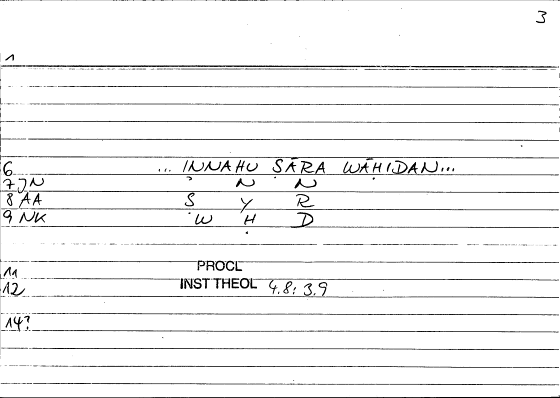 3
1
6 ... INNAHU ṢĀRA WĀḤIDAN...
7 JN N N
8 AA S Y R
9 NK W Ḥ D
11 PROCL
12 INST THEOL 4.8; 3.9
14?